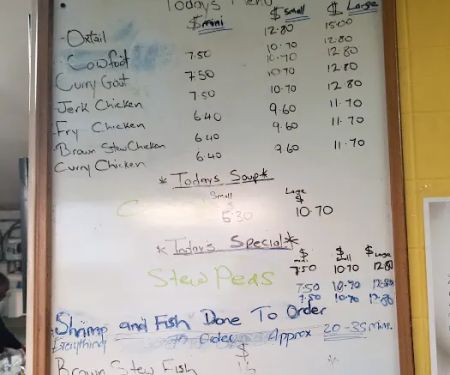 Todays Menu
$ mini $ small $ Large
Oxtail 12.80 15.00
Cowfoot 7.50 10.70 12.80
Curry Goat 7.50 10.70 12.80
Jerk Chicken 7.50 10.70 12.80
Fry Chicken 6.40 9.60 11.70
Brown Stew Chicken 6.40 9.60 11.70
Curry Chicken 6.40 9.60 11.70
* Todays Soup *
Small Large
$ $
5.30 10.70
* Today's Special *
$ $ $ Large
Stew Peas 7.50 10.70 12.80
7.50 10.70 12.80
7.50 10.70 12.80
Shrimp and Fish Done To Order
Everything to Order Approx 20-35 Mins.
Brown Stew Fish $